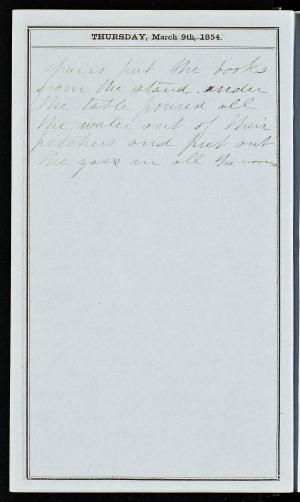 THURSDAY, March 9th, 1854.
chairs put the books
from the stand under
the table poured all
the water out of their
pitchers and put out
the gass in all the rooms